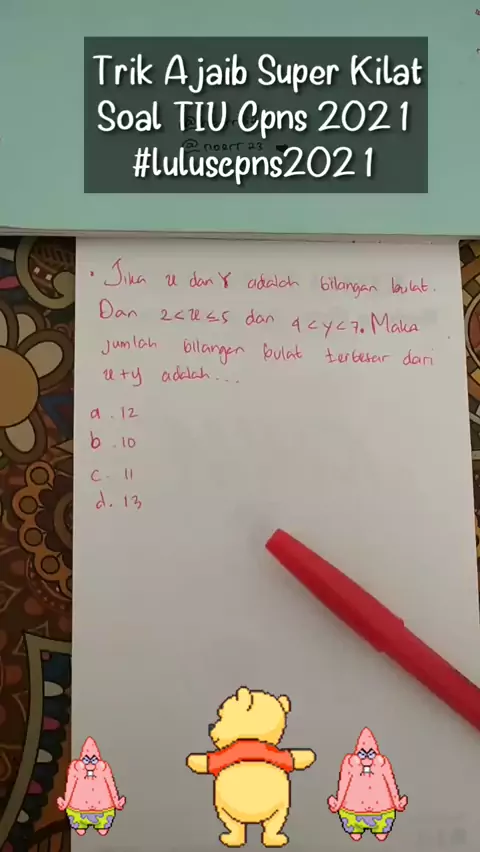 Trik Ajaib Super Kilat
Soal TIU Cpns 2021
#luluscpns2021
Jika x dan Y adalah bilangan bulat.
Dan 2 < x ≤ 5 dan 4 < y < 7. Maka
jumlah bilangan bulat terbesar dari
x + y adalah...
a. 12
b. 10
c. 11
d. 13